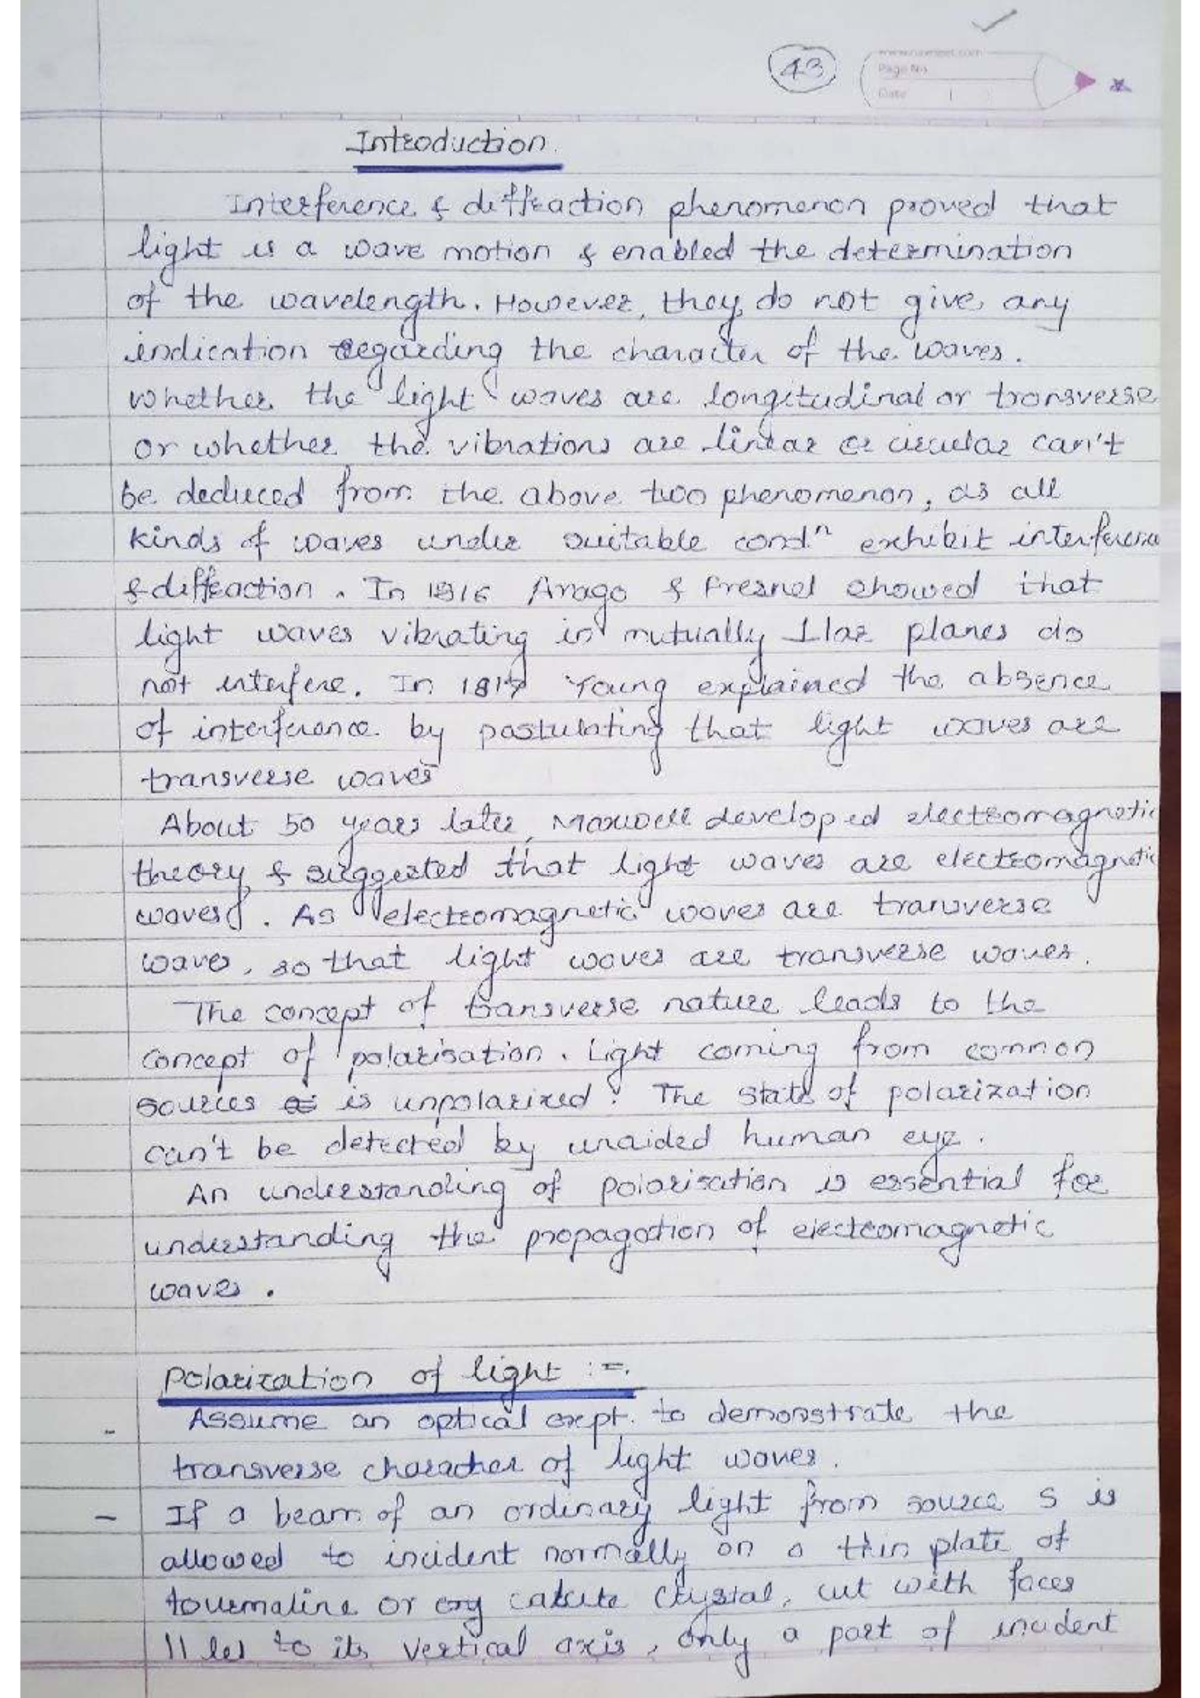 43
Page No
Date
Introduction.
Interference & diffraction phenomenon proved that
light is a wave motion & enabled the determination
of the wavelength. However, they do not give any
indication regarding the character of the waves.
whether the light waves are longitudinal or transverse
or whether the vibrations are linear or circular can't
be deduced from the above two phenomenon, as all
kinds of waves under suitable condⁿ exhibit interference
& diffraction. In 1816 Arago & Fresnel showed that
light waves vibrating in mutually ⊥lar planes do
not interfere. In 1817 Young explained the absence
of interference by postulating that light waves are
transverse waves
About 50 years later, Maxwell developed electromagnetic
theory & suggested that light waves are electromagnetic
waves. As electromagnetic waves are transverse
wave, so that light waves are transverse waves.
The concept of transverse nature leads to the
concept of polarisation. Light coming from common
sources is unpolarized. The state of polarization
can't be detected by unaided human eye.
An understanding of polarisation is essential for
understanding the propagation of electromagnetic
waves.
Polarization of light :=.
- Assume an optical expt. to demonstrate the
transverse character of light waves.
- If a beam of an ordinary light from source S is
allowed to incident normally on a thin plate of
tourmaline or any calcite crystal, cut with faces
11 lel to its vertical axis, only a part of incident